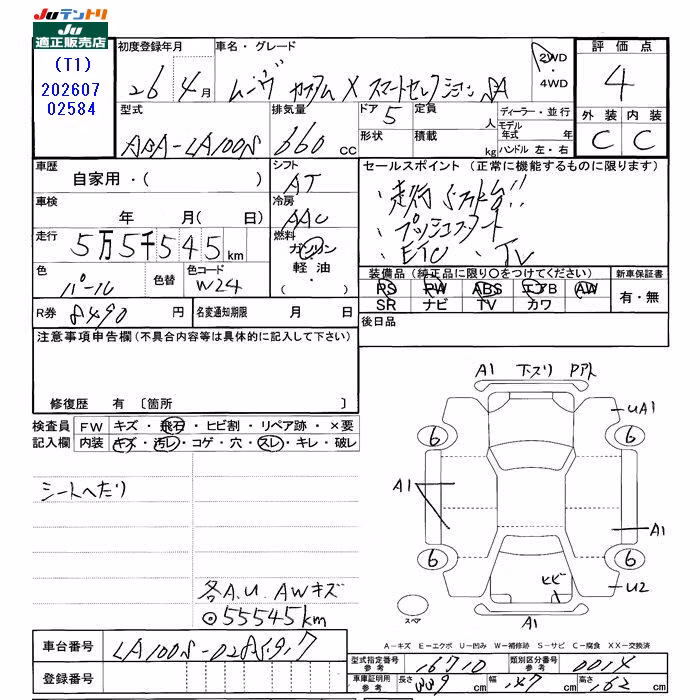 Juテントリ
Ju
適正販売店
(T1)
202607
02584
初度登録年月 車名・グレード 2WD ・ 4WD 評価点
26 4月 ムーヴ カスタム X スマートセレクション SA 4
型式 排気量 ドア 定員 ディーラー・並行 外装 内装
ABA-LA100S 660 cc 5 人 モデル年式 年 C C
形状 積載 kg ハンドル 左・右
車歴 シフト セールスポイント (正常に機能するものに限ります)
自家用・( ) AT
・走行5万km台!!
車検 冷房 ・プッシュスタート
年 月( 日) AAC ・ETC ・TV
走行 燃料
5万5千545km ガソリン・軽油・
装備品 (純正品に限り○をつけてください) 新車保証書
色 色替 色コード PS PW ABS エアB AW 有・無
パール W24 SR ナビ TV カワ
R券 8490 円 名変通知期限 月 日 後日品
注意事項申告欄 (不具合内容等は具体的に記入して下さい)
修復歴 有 〔箇所 〕
検査員 FW キズ・飛石・ヒビ割・リペア跡・×要
記入欄 内装 キズ・汚レ・コゲ・穴・スレ・キレ・破レ
シートヘたり
各A.U. AWキズ
◎55545km
A1 下スリ Pアト
UA1
6 6
A1 A1
6 6
ヒビ U2
スペア A1
A-キズ E-エクボ U-凹み W-補修跡 S-サビ C-腐食 XX-交換済
車台番号 LA100S-0285917
登録番号
型式指定番号 参考 16710 類別区分番号 参考 0014
車庫証明用 参考 長さ 339 cm 幅 147 cm 高さ 162 cm